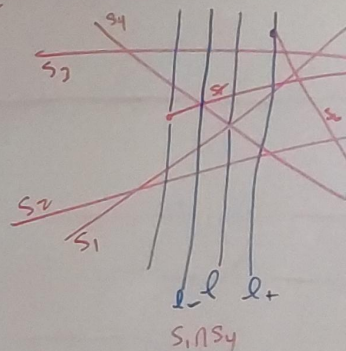 S4
S3
S5
S6
S2
S1
l- l l+
S1 ∩ S4